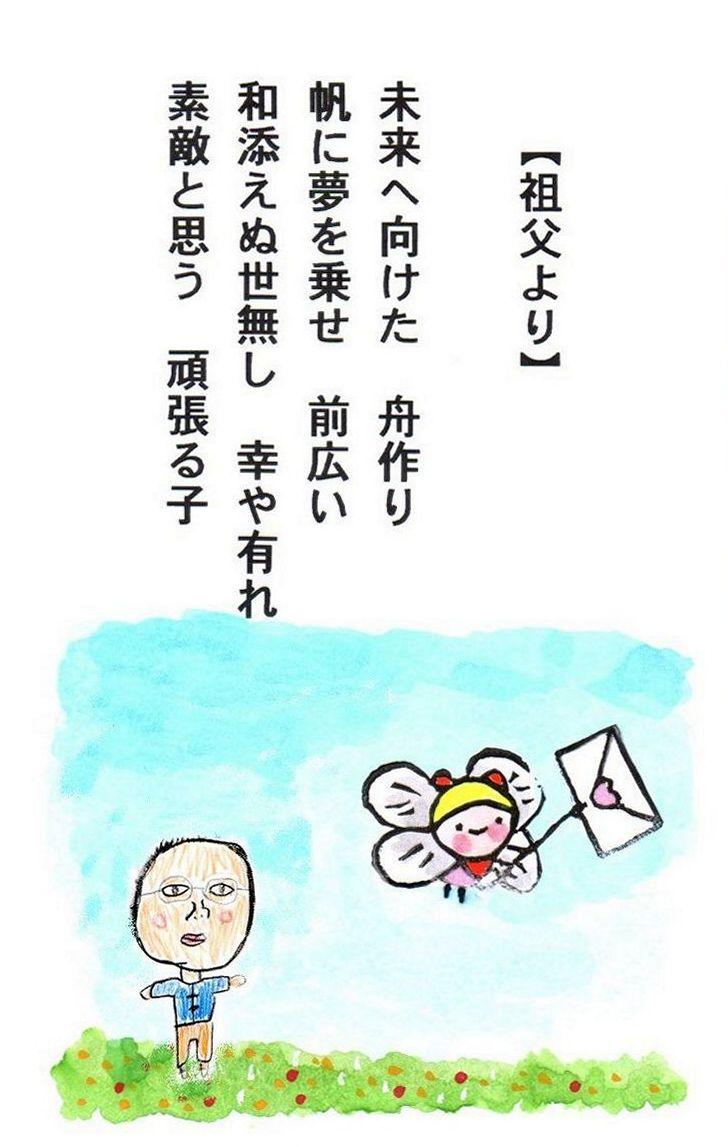 【祖父より】
未来へ向けた　舟作り
帆に夢を乗せ　前広い
和添えぬ世無し　幸や有れ
素敵と思う　頑張る子